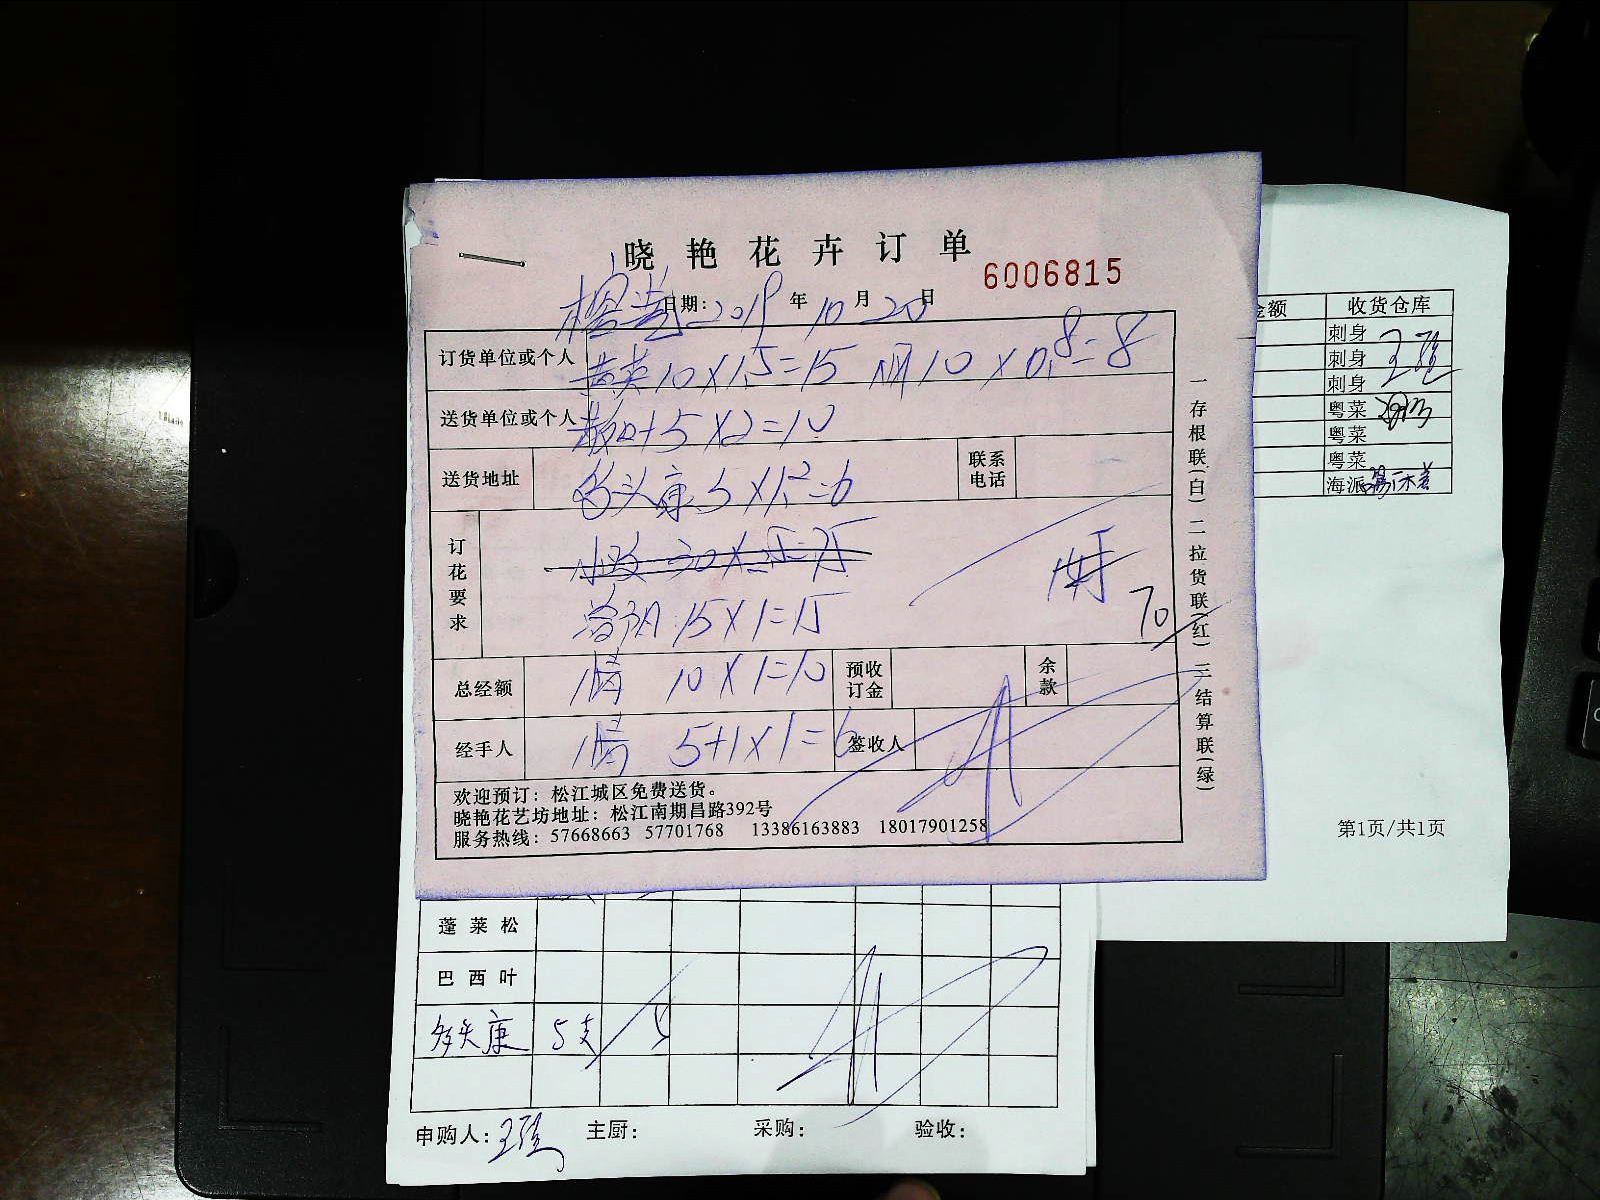 晓艳花卉订单
6006815
日期: 2019 年 10 月 20 日
订货单位或个人 10×1.5=15 10×0.8=8
送货单位或个人 5×2=10
送货地址 多头康 5×1.2=6 联系电话
订花要求
30×2.5=75
15×1=15
70
总经额 10×1=10 预收订金 余款
经手人 5+1×1=6 签收人
欢迎预订：松江城区免费送货。
晓艳花艺坊地址：松江南期昌路392号
服务热线：57668663 57701768 13386163883 18017901258
一存根联(白) 二拉货联(红) 三结算联(绿)
金额 收货仓库
刺身
刺身
刺身
粤菜
粤菜
粤菜
海派
第1页/共1页
蓬莱松
巴西叶
多头康 5支 5
申购人: 主厨: 采购: 验收: